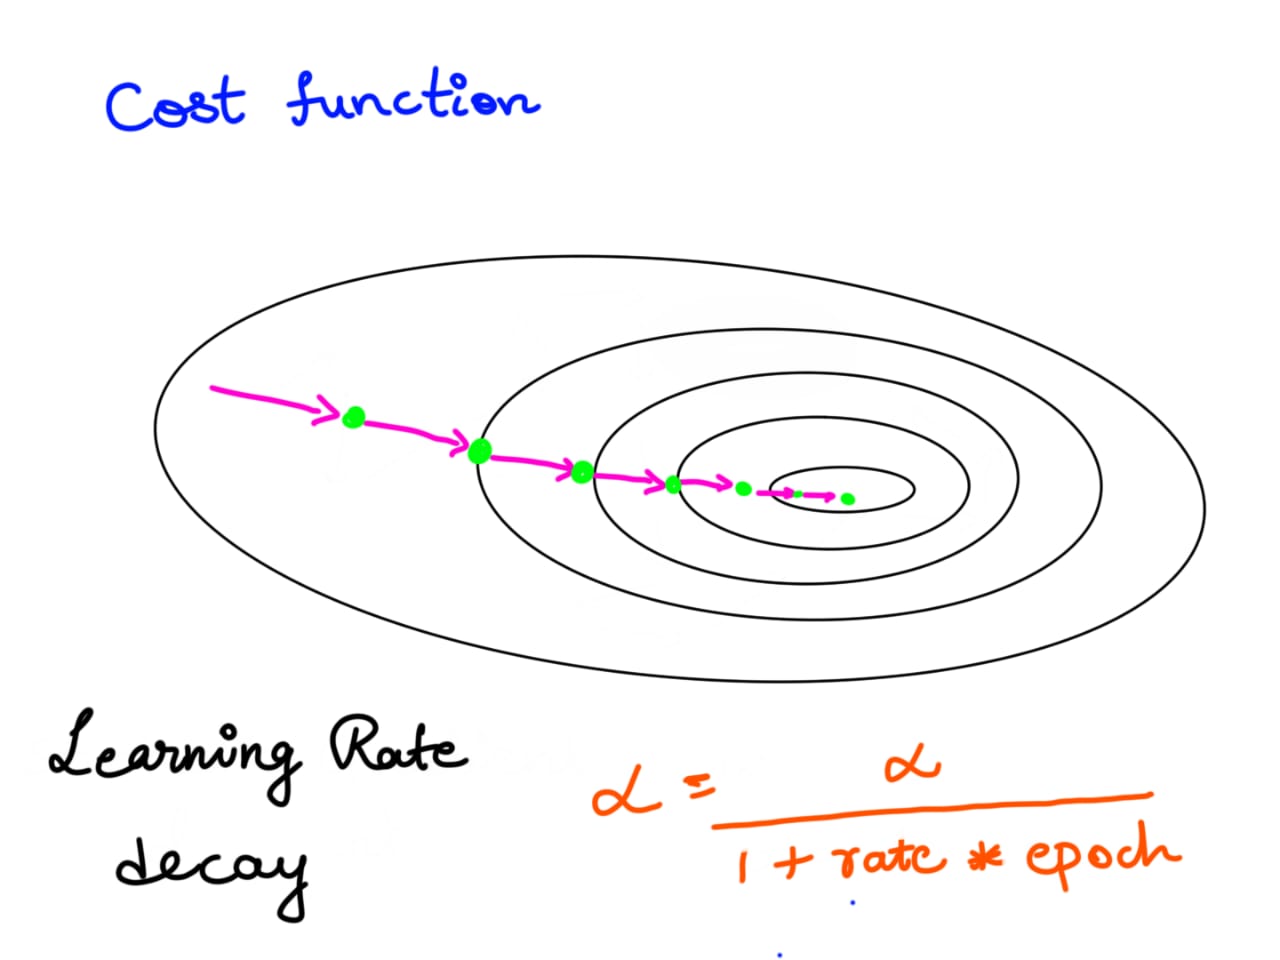 Cost function
Learning Rate
decay
α = α / 1 + rate * epoch